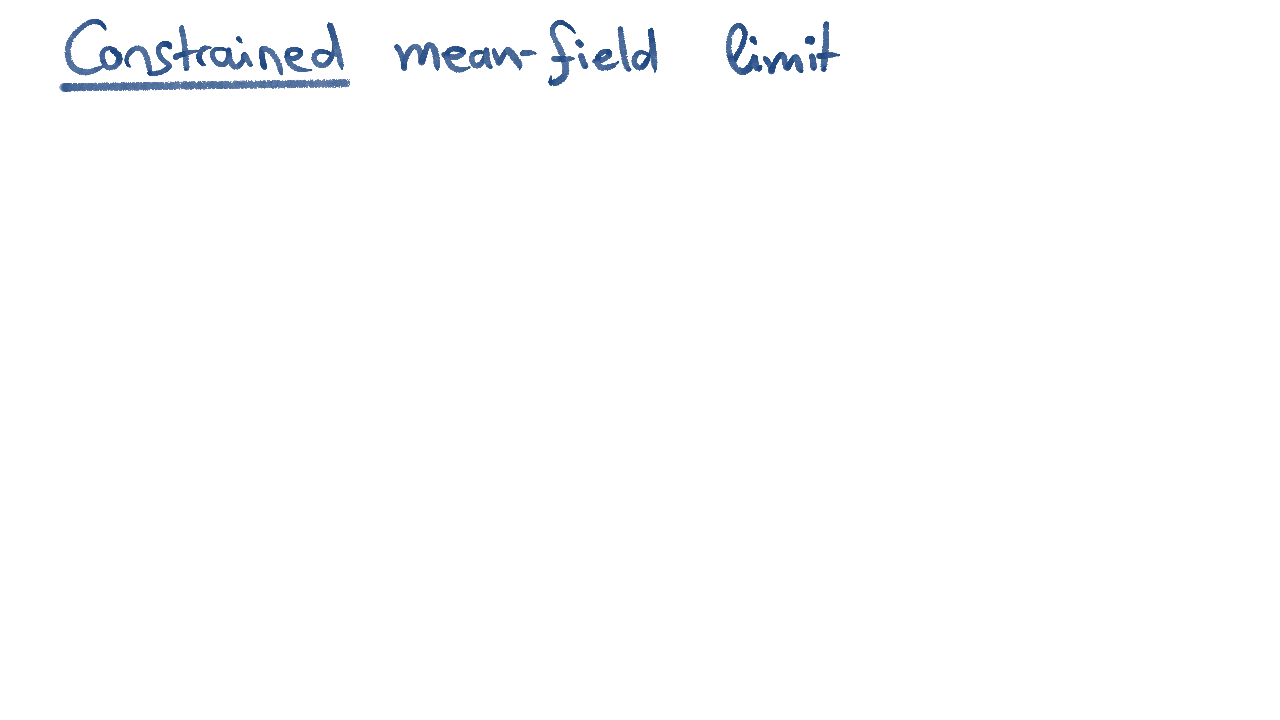 Constrained mean-field limit